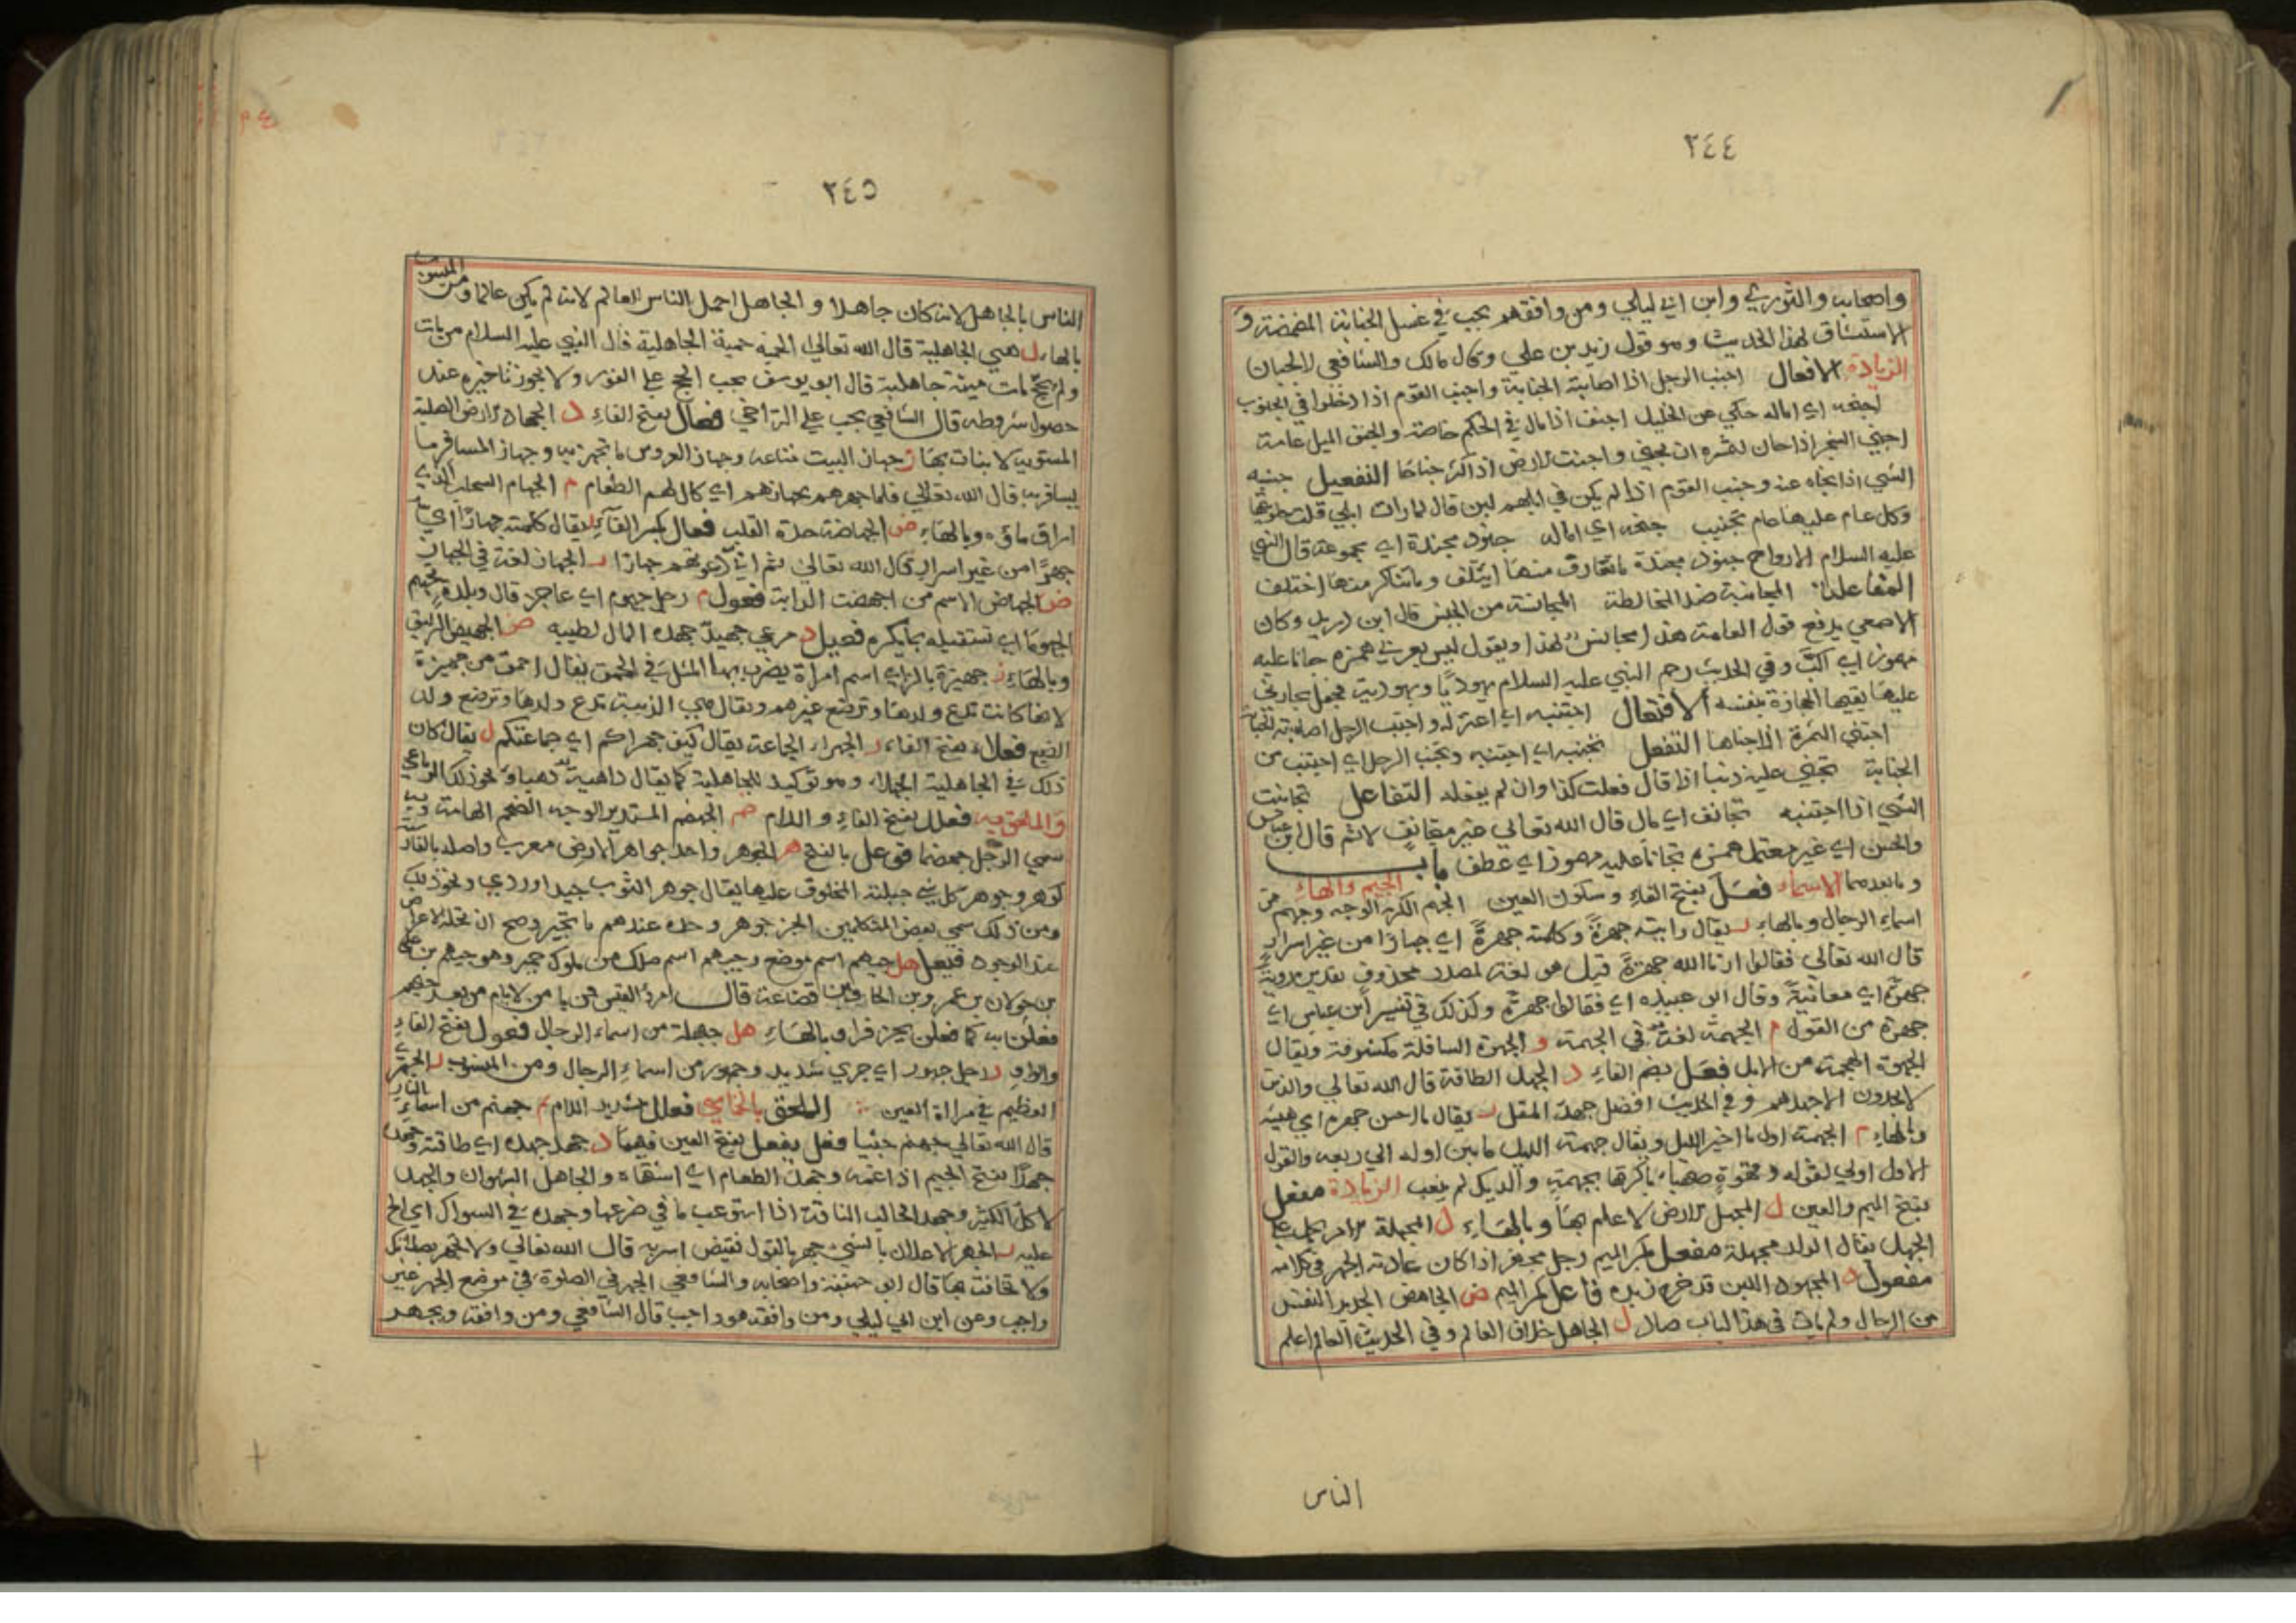 ٢٤٤
واصحابه والثوري وابن ابي ليلي ومن وافقهم يجب في غسل الجنابة المضمضة و
الاستنشاق لهذا الحديث وهو قول زيد بن علي وقال مالك والشافعي لا يجبان
الزيادة الافعال اجنب الرجل اذا اصابته الجنابة واجنب القوم اذا دخلوا في الجنوب
اجنفه اي اماله حكي عن الخليل اجنف اذا مال في الحكم خاصة والجنف الميل عامة
اجني الشجر اذا حان لثمره ان يجني واجنت الارض اذا اكثر جناها التفعيل جنبه
الشي اذا نجاه عنه وجنب القوم اذا لم يكن في ابلهم لبن قال لما رات ابلي قلت حلوبتها
وكل عام عليها عام تجنيب جنفه اي اماله جنود مجندة اي مجموعة قال النبي
عليه السلام الارواح جنود مجندة ما تعارف منها ايتلف وما تناكر منها اختلف
المفاعلة المجانبة ضد المخالطة المجانسة من الجنس قال ابن دريد وكان
الاصمعي يدفع قول العامة هذا مجانس لهذا ويقول ليس بعربي همزه جانا عليه
مهموز اي اكب وفي الحديث رجم النبي عليه السلام يهوديا ويهودية فجعل يجاني
عليها يقيها الحجارة بنفسه الافتعال اجتنبه اي اعتزله واجتنب الرجل اصابته الجنابة
اجتني الثمرة اذا جناها التفعل تجنبه اي اجتنبه وتجنب الرجل اي اجتنب من
الجنابة تجني عليه ذنبا اذا قال فعلت كذا وان لم يفعله التفاعل تجانبت
الشي اذا اجتنبه تجانف اي مال قال الله تعالي غير متجانف لاثم قال ابن عباس
والحسن اي غير متعمل همزه تجانا عليه مهموز اي عطف باب الجيم والهاء
وما بعدهما الاسماء فعل بفتح الفاء وسكون العين الجهم الكريه الوجه وجهم من
اسماء الرجال وبالهاء ر يقال رايته جهرة وكلمته جهرة اي جهارا من غير اسرار
قال الله تعالي فقالوا ارنا الله جهرة قيل هو لغة لمصدر محذوف تقديره روية
جهرة اي معاينة وقال ابو عبيدة اي فقالوا جهرة وكذلك في تفسير ابن عباس اي
جهرة من القول م الجهمة لغة في الجهمة و الجهوة السافلة مكشوفة ويقال
الجهوة الهجمة من الابل فعل بضم الفاء د الجهد الطاقة قال الله تعالي والذين
لا يجدون الا جهدهم وفي الحديث افضل جهد المقل ر يقال ما احسن جهره اي هيئته
وبالهاء م الجهمة اول مااخير الليل ويقال جهمة الليل ما بين اوله الي ربعه والقول
الاول اولي لقوله وقهوة صهباء باكرتها بجهمة والديك لم ينعب الزيادة مفعل
بفتح الميم والعين ل المجهل الارض لا علم بها وبالهاء ل المجهلة الامر يحمل علي
الجهل يقال الولد مجهلة مفعل بكسر الميم رجل مجهر اذا كان عادته الجهر في كلامه
مفعول د المجهود اللبن قد خرج زبده فاعل بكسر الميم ض الجاهض الحديد النفس
من الرجال ولم يات في هذا الباب صاد ل الجاهل خلاف العالم وفي الحديث العالم اعلم
الناس
٢٤٥
الناس بالجاهل لانه كان جاهلا والجاهل اجهل الناس بالعالم لانه لم يكن عالما ومن المنسوب
بالهاء ل هي الجاهلية قال الله تعالي الحمية حمية الجاهلية قال النبي عليه السلام من مات
ولم يحج مات ميتة جاهلية قال ابو يوسف يجب الحج علي الفور ولا يجوز تاخيره عند
حصول شروطه قال الشافعي يجب علي التراخي فعال بفتح الفاء د الجهاد الارض الصلبة
المستوية لا نبات بها ز جهاز البيت متاعه وجهاز العروس ما تجهز به وجهاز المسافر ما
يسافر به قال الله تعالي فلما جهزهم بجهازهم اي كال لهم الطعام م الجهام السحاب الذي
اراق ماؤه وبالهاء ض الجهاضة حدة القلب فعال بكسر الفاء ر يقال كلمته جهارا اي
جهرا من غير اسرار قال الله تعالي ثم اني دعوتهم جهارا ز الجهاز لغة في الجهاز
ض الجهاض الاسم من اجهضت الدابة فعول م رجل جهوم اي عاجز قال وبلدة تجهم
الجهوما اي تستقبله بما يكره فعيل د مرعي جهيد جهده المال لطيبه ض الجهيض الزليق
وبالهاء ز جهيزة بالزاي اسم امراة يضرب بها المثل في الحمق يقال احمق من جهيزة
لانها كانت تدع ولدها وترضع غيرهم ويقال هي الذئبة تدع ولدها وترضع ولد
الضبع فعلاء بفتح الفاء ر الجهراء الجماعة يقال كيف جهراكم اي جماعتكم ل يقال كان
ذلك في الجاهلية الجهلاء وهو توكيد للجاهلية كما يقال داهية دهياء ونحو ذلك الرباعي
والملحق به فعلل بفتح الفاء واللام ضم الجهضم المستدير الوجه الضخم الهامة وبه
سمي الرجل جهضما فوعل بالفتح هر الجوهر واحد جواهر الارض معرب واصله بالفارسية
كوهر وجوهر كل شي جبلته المخلوق عليها يقال جوهر الثوب جيد اوردي ونحو ذلك
ومن ذلك سمي بعض المتكلمين الجزء جوهر وحده عندهم ما تحيز وصح ان تحله الاعراض
عند الوجود فيعل هل جيهم اسم موضع وجيهم اسم ملك من ملوك حمير وهو جيهم بن علي
بن خولان بن عمرو بن الحاف بن قضاعة قال امرؤ القيس فمن يامن الايام من بعد جيهم
فعلن به كما فعلن بحزفرا وبالهاء هل جيهلة من اسماء الرجال فعول بفتح الفاء
والواو ر رجل جهور اي جري شديد وجهور من اسماء الرجال ومن المنسوب ر الجهوري
العظيم في مراة العين الملحق بالخماسي فعلل بتشديد اللام نم جهنم من اسماء النار
قال الله تعالي جهنم جثيا فعل يفعل بفتح العين فيهما د جهد جهده اي طاقته وجهده
جهدا بفتح الجيم اذا غمه وجهد الطعام اي اشتهاه والجاهل الشهوان والجهد
الاكل الكثير وجهد الحالب الناقة اذا استوعب ما في ضرعها وجهده في السوال اي الح
عليه ر الجهر الاعلان بالشي جهر بالقول نقيض اسر به قال الله تعالي ولا تجهر بصلاتك
ولا تخافت بها قال ابو حنيفة واصحابه والشافعي الجهر في الصلوة في موضع الجهر غير
واجب وعن ابن ابي ليلي ومن وافقه هو واجب قال الشافعي ومن وافقه ويجهر